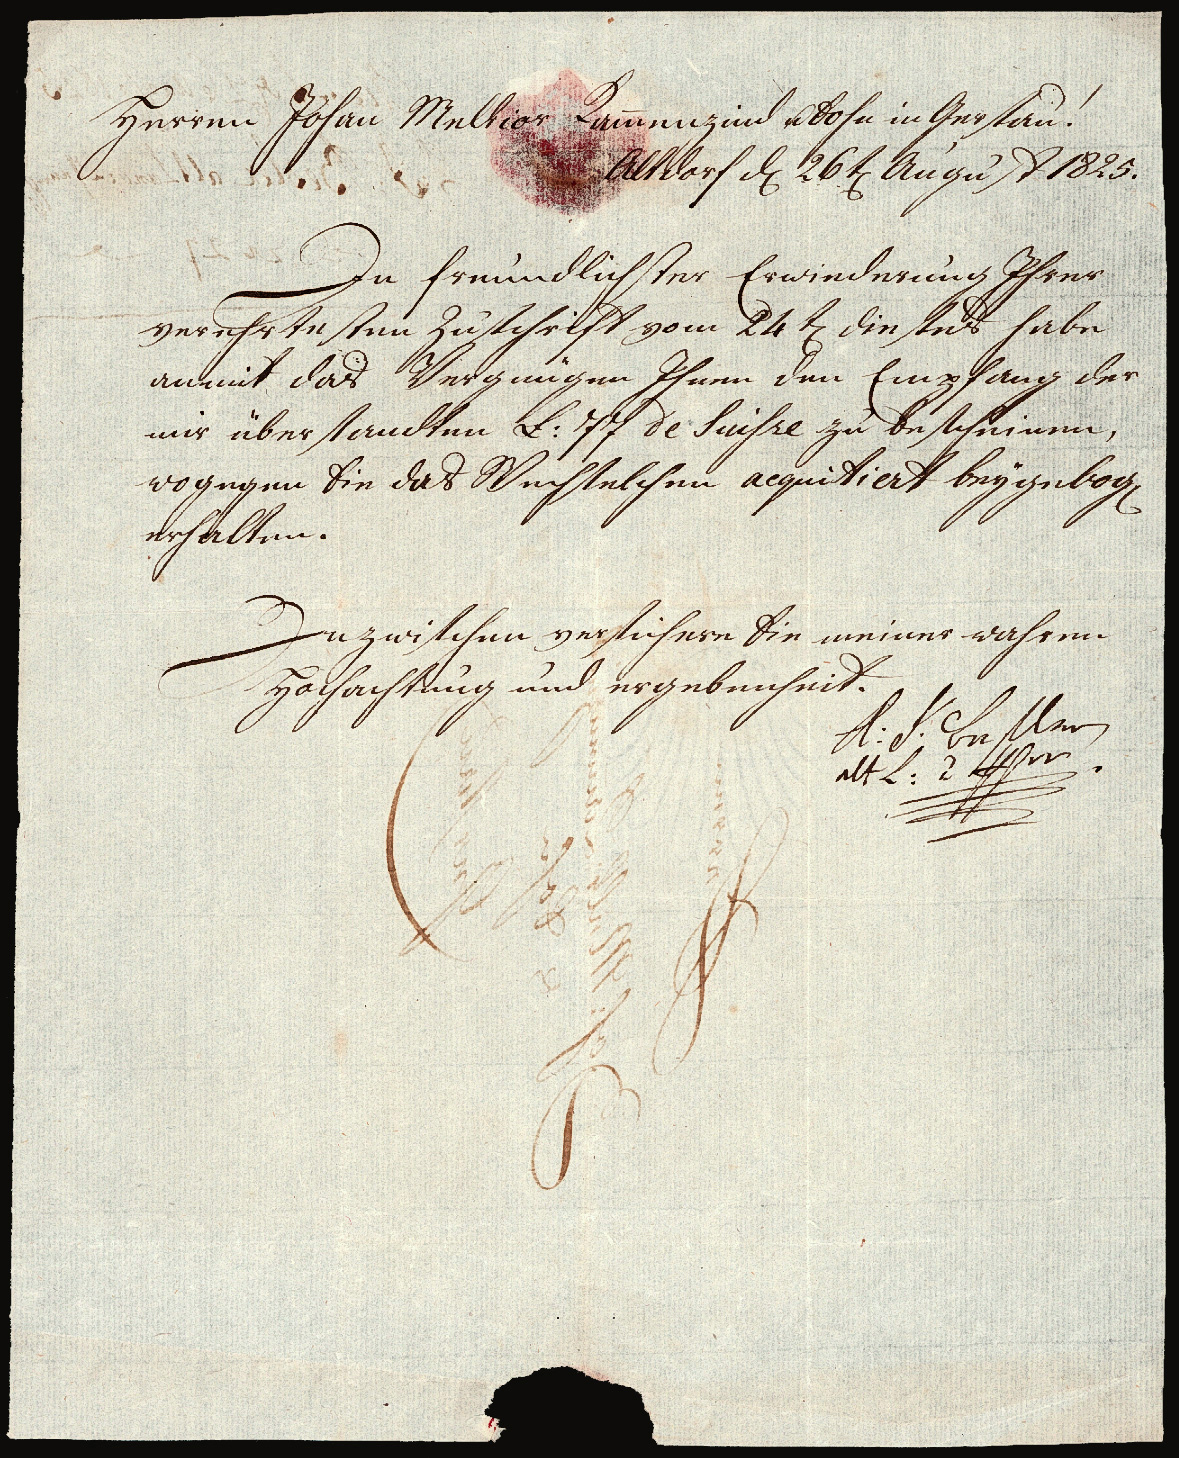 Herren Johan Melkior Kam̅enzind & Sohn in Gersau!
Altdorf d. 26t. August 1825.
In freundlichster Erwiederung Ihrer
verehrtesten Zuschrift vom 24t. dieses habe
anmit das Vergnügen Ihnen den Empfang der
mir übersandten L: 77 de Suisse zu bescheinen,
wogegen Sie das Wechselchen acquitiert beÿgebog.
erhalten.
Inzwischen versichere Sie meiner wahren
Hochachtung und ergebenheit.
Besler
alt L: